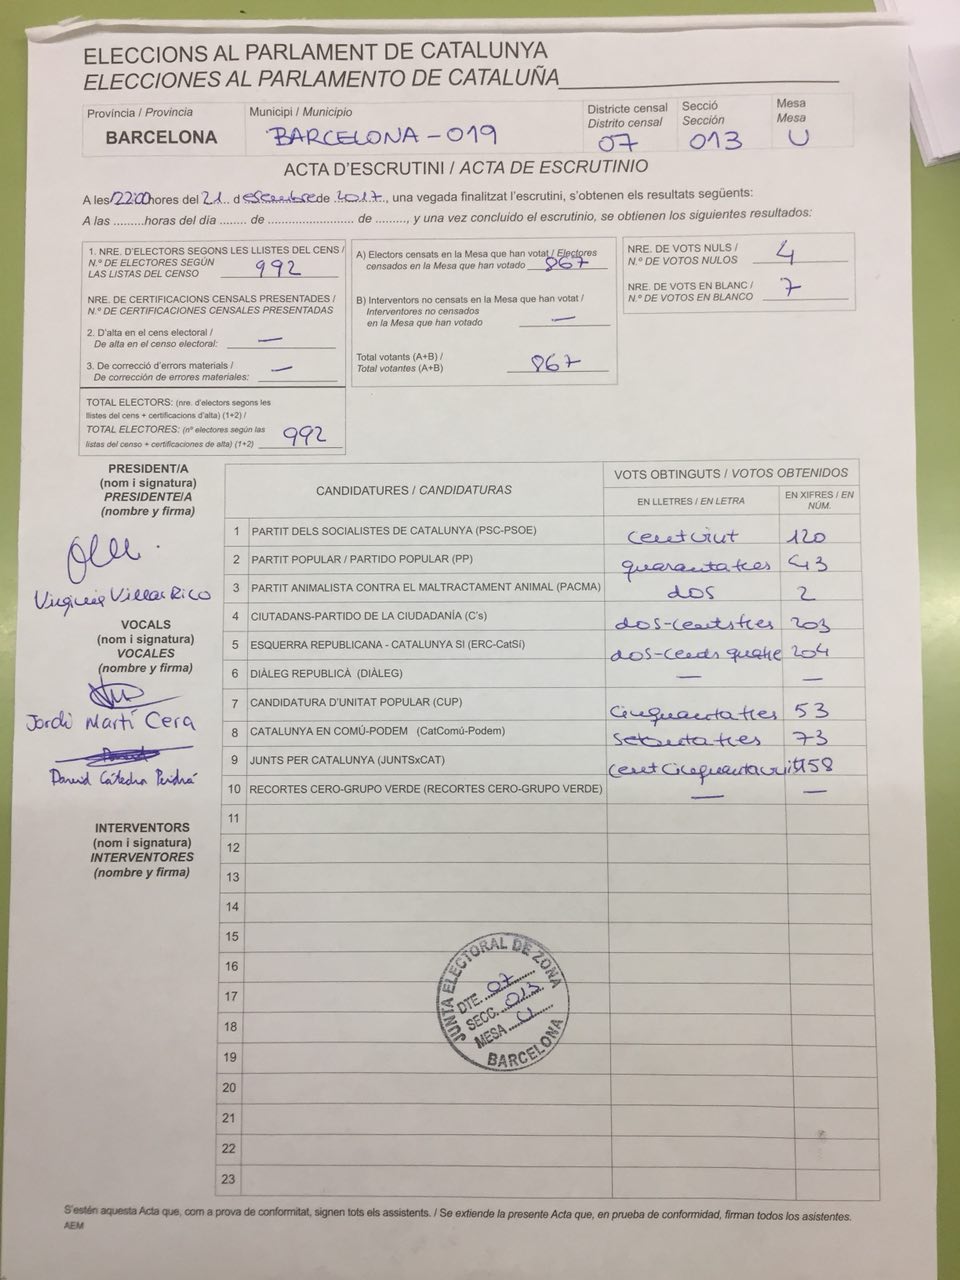 ELECCIONS AL PARLAMENT DE CATALUNYA
ELECCIONES AL PARLAMENTO DE CATALUÑA
Província / Provincia
BARCELONA
Municipi / Municipio
BARCELONA - 019
Districte censal
Distrito censal
07
Secció
Sección
013
Mesa
Mesa
U
ACTA D'ESCRUTINI / ACTA DE ESCRUTINIO
A les 22:00 hores del 21 desembre de 2017, una vegada finalitzat l'escrutini, s'obtenen els resultats següents:
A las .........horas del día ........ de ........................ de ........., y una vez concluido el escrutinio, se obtienen los siguientes resultados:
1. NRE. D'ELECTORS SEGONS LES LLISTES DEL CENS /
N.º DE ELECTORES SEGÚN
LAS LISTAS DEL CENSO 992
NRE. DE CERTIFICACIONS CENSALS PRESENTADES /
N.º DE CERTIFICACIONES CENSALES PRESENTADAS
2. D'alta en el cens electoral /
De alta en el censo electoral: —
3. De correcció d'errors materials /
De corrección de errores materiales: —
TOTAL ELECTORS: (nre. d'electors segons les
llistes del cens + certificacions d'alta) (1+2) /
TOTAL ELECTORES: (nº electores según las
listas del censo + certificaciones de alta) (1+2) 992
A) Electors censats en la Mesa que han votat / Electores
censados en la Mesa que han votado 867
B) Interventors no censats en la Mesa que han votat /
Interventores no censados
en la Mesa que han votado —
Total votants (A+B) /
Total votantes (A+B) 867
NRE. DE VOTS NULS /
N.º DE VOTOS NULOS 4
NRE. DE VOTS EN BLANC /
N.º DE VOTOS EN BLANCO 7
PRESIDENT/A
(nom i signatura)
PRESIDENTE/A
(nombre y firma)
Virginia Villar Rico
VOCALS
(nom i signatura)
VOCALES
(nombre y firma)
Jordi Martí Cera
David Cátedra
INTERVENTORS
(nom i signatura)
INTERVENTORES
(nombre y firma)
CANDIDATURES / CANDIDATURAS
VOTS OBTINGUTS / VOTOS OBTENIDOS
EN LLETRES / EN LETRA
EN XIFRES / EN NÚM.
1 PARTIT DELS SOCIALISTES DE CATALUNYA (PSC-PSOE) cent vint 120
2 PARTIT POPULAR / PARTIDO POPULAR (PP) quaranta tres 43
3 PARTIT ANIMALISTA CONTRA EL MALTRACTAMENT ANIMAL (PACMA) dos 2
4 CIUTADANS-PARTIDO DE LA CIUDADANÍA (C's) dos-cents tres 203
5 ESQUERRA REPUBLICANA - CATALUNYA SI (ERC-CatSí) dos-cents quatre 204
6 DIÀLEG REPUBLICÀ (DIÀLEG) — —
7 CANDIDATURA D'UNITAT POPULAR (CUP) Cinquanta tres 53
8 CATALUNYA EN COMÚ-PODEM (CatComú-Podem) Setanta tres 73
9 JUNTS PER CATALUNYA (JUNTSxCAT) cent cinquanta vuit 158
10 RECORTES CERO-GRUPO VERDE (RECORTES CERO-GRUPO VERDE) — —
11
12
13
14
15
16
17
18
19
20
21
22
23
JUNTA ELECTORAL DE ZONA
DTE. 07
SECC. 013
MESA U
BARCELONA
S'estén aquesta Acta que, com a prova de conformitat, signen tots els assistents. / Se extiende la presente Acta que, en prueba de conformidad, firman todos los asistentes.
AEM